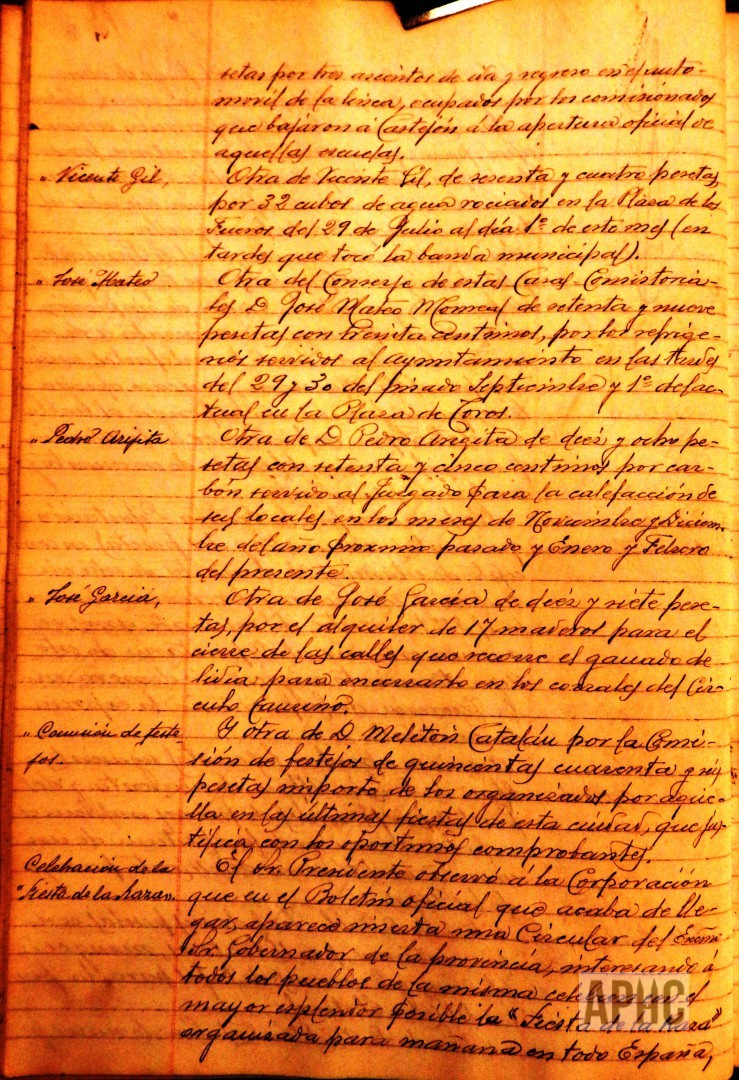 setas por tres asientos de ida y regreso en el auto-
movil de la linea, ocupados por los comisionados
que bajaron á Castejón á la apertura oficial de
aquellas escuelas.
" Vicente Gil,
Otra de Vicente Gil, de sesenta y cuatro pesetas,
por 32 cubos de agua rociados en la Plaza de los
Fueros del 29 de Julio al día 1º de este mes (en
tardes que tocó la banda municipal).
" José Mateo
Otra del Conserje de estas Casas-Consistoria-
les D. José Mateo Monreal de setenta y nueve
pesetas con treinta centimos, por los refrige-
rios servidos al ayuntamiento en las tardes
del 29 y 30 del pasado Septiembre y 1º del ac-
tual en la Plaza de Toros.
" Pedro Angita
Otra de D. Pedro Angita de diez y ocho pe-
setas con setenta y cinco centimos por car-
bón servido al Juzgado para la calefacción de
sus locales en los meses de Noviembre y Diciem-
bre del año proximo pasado y Enero y Febrero
del presente.
" José García,
Otra de José García de diez y siete pese-
tas, por el alquiler de 17 maderos para el
cierre de las calles que recorre el ganado de
lidia para encerrarlo en los corrales del Cír-
culo Taurino.
" Comisión de feste-
jos.
Y otra de D Melitón Catalán por la Comi-
sión de festejos de quinientas cuarenta y seis
pesetas importe de los organizados por aque-
lla en las últimas fiestas de esta ciudad, que jus-
tifica con los oportunos comprobantes.
Celebración de la
"Fiesta de la Raza".
El Sr. Presidente observó á la Corporación
que en el Boletín oficial que acaba de lle-
gar, aparece inserta una Circular del Excmo
Sr. Gobernador de la provincia, interesando á
todos los pueblos de la misma celebren con el
mayor esplendor posible la "Fiesta de la Raza"
organizada para mañana en todo España,
APHC